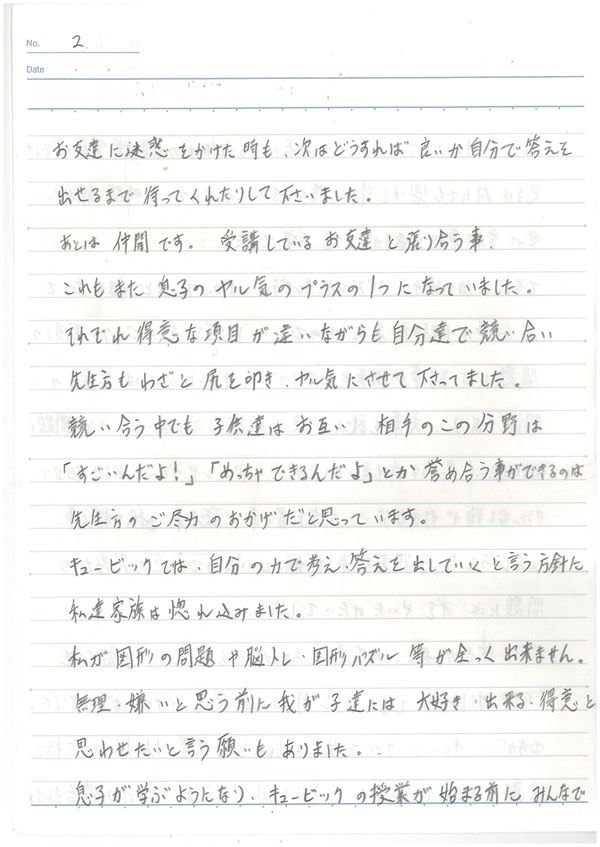 No. 2
Date
お友達に迷惑をかけた時も、次はどうすれば良いか自分で答えを
出せるまで待ってくれたりして下さいました。
あとは仲間です。受講しているお友達と張り合う事、
これもまた息子のヤル気のプラスの1つになっていました。
それぞれ得意な項目が違いながらも自分達で競い合い
先生方もわざと尻を叩き、ヤル気にさせて下さってました。
競い合う中でも子供達はお互い相手のこの分野は
「すごいんだよ!」「めっちゃできるんだよ」とか誉め合う事ができるのは
先生方のご尽力のおかげだと思っています。
キュービックでは、自分の力で考え、答えを出していくと言う方針に
私達家族は惚れ込みました。
私が図形の問題や脳トレ・図形パズル等が全っく出来ません。
無理・嫌いと思う前に我が子達には大好き・出来る・得意と
思わせたいと言う願いもありました。
息子が学ぶようになり、キュービックの授業が始まる前にみんなで